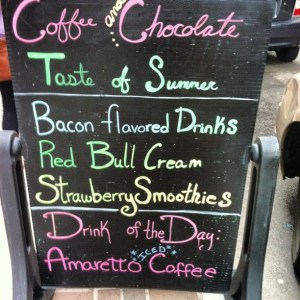 Coffee and Chocolate
Taste of Summer
Bacon flavored Drinks
Red Bull Cream
Strawberry Smoothies
Drink of the Day.
"ICED"
Amaretto Coffee